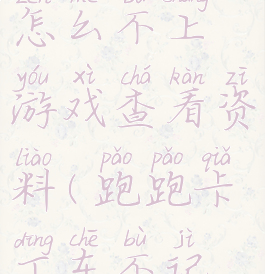 怎么不上
yóu xì chá kàn zī
游戏查看资
liào pǎo pǎo qiǎ
料(跑跑卡
dīng chē bù jì
丁车不记